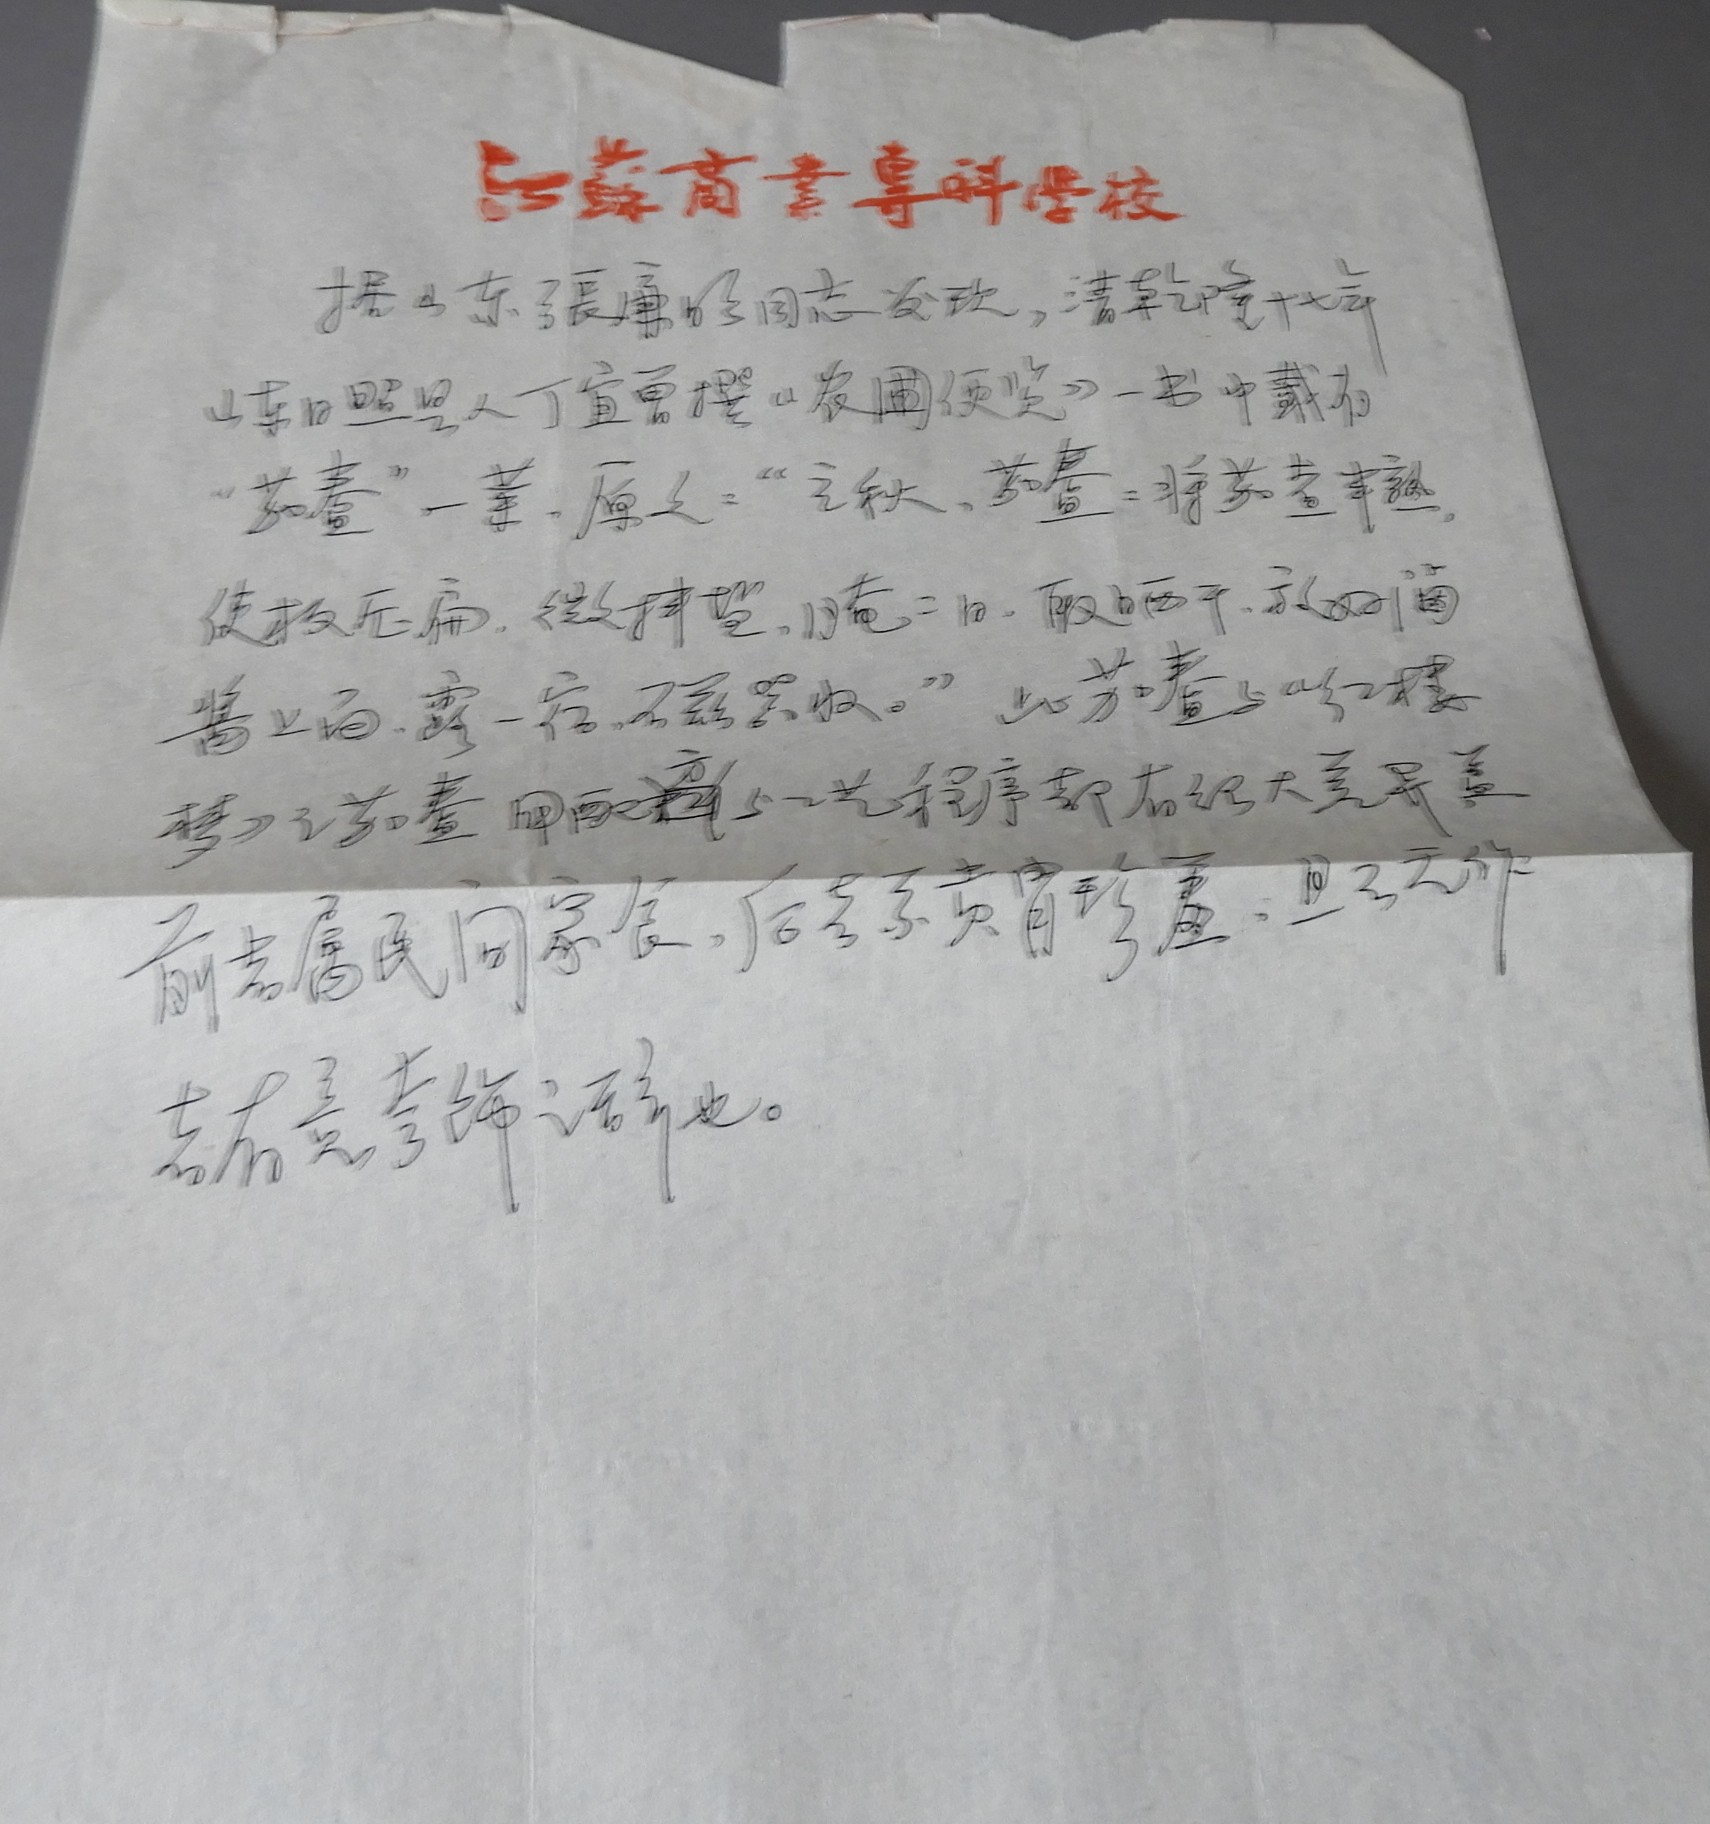 江蘇商業專科学校
据山东張廉明同志发现，清乾隆十七年
山东日照县人丁宜曾撰《农圃便览》一书中載有
“茄鲞”一菜．原文：“立秋、茄鲞：将茄煮半熟，
使板压扁．微拌盐，腌二日．取晒干．放好滷
酱上面．露一宿．磁器收。”此茄鲞与《红楼
梦》之茄鲞用配料与工艺程序都有很大差异盖
前者属民间家食，后者系贵胄珍羞．且不无作
者有意夸饰之语言也。